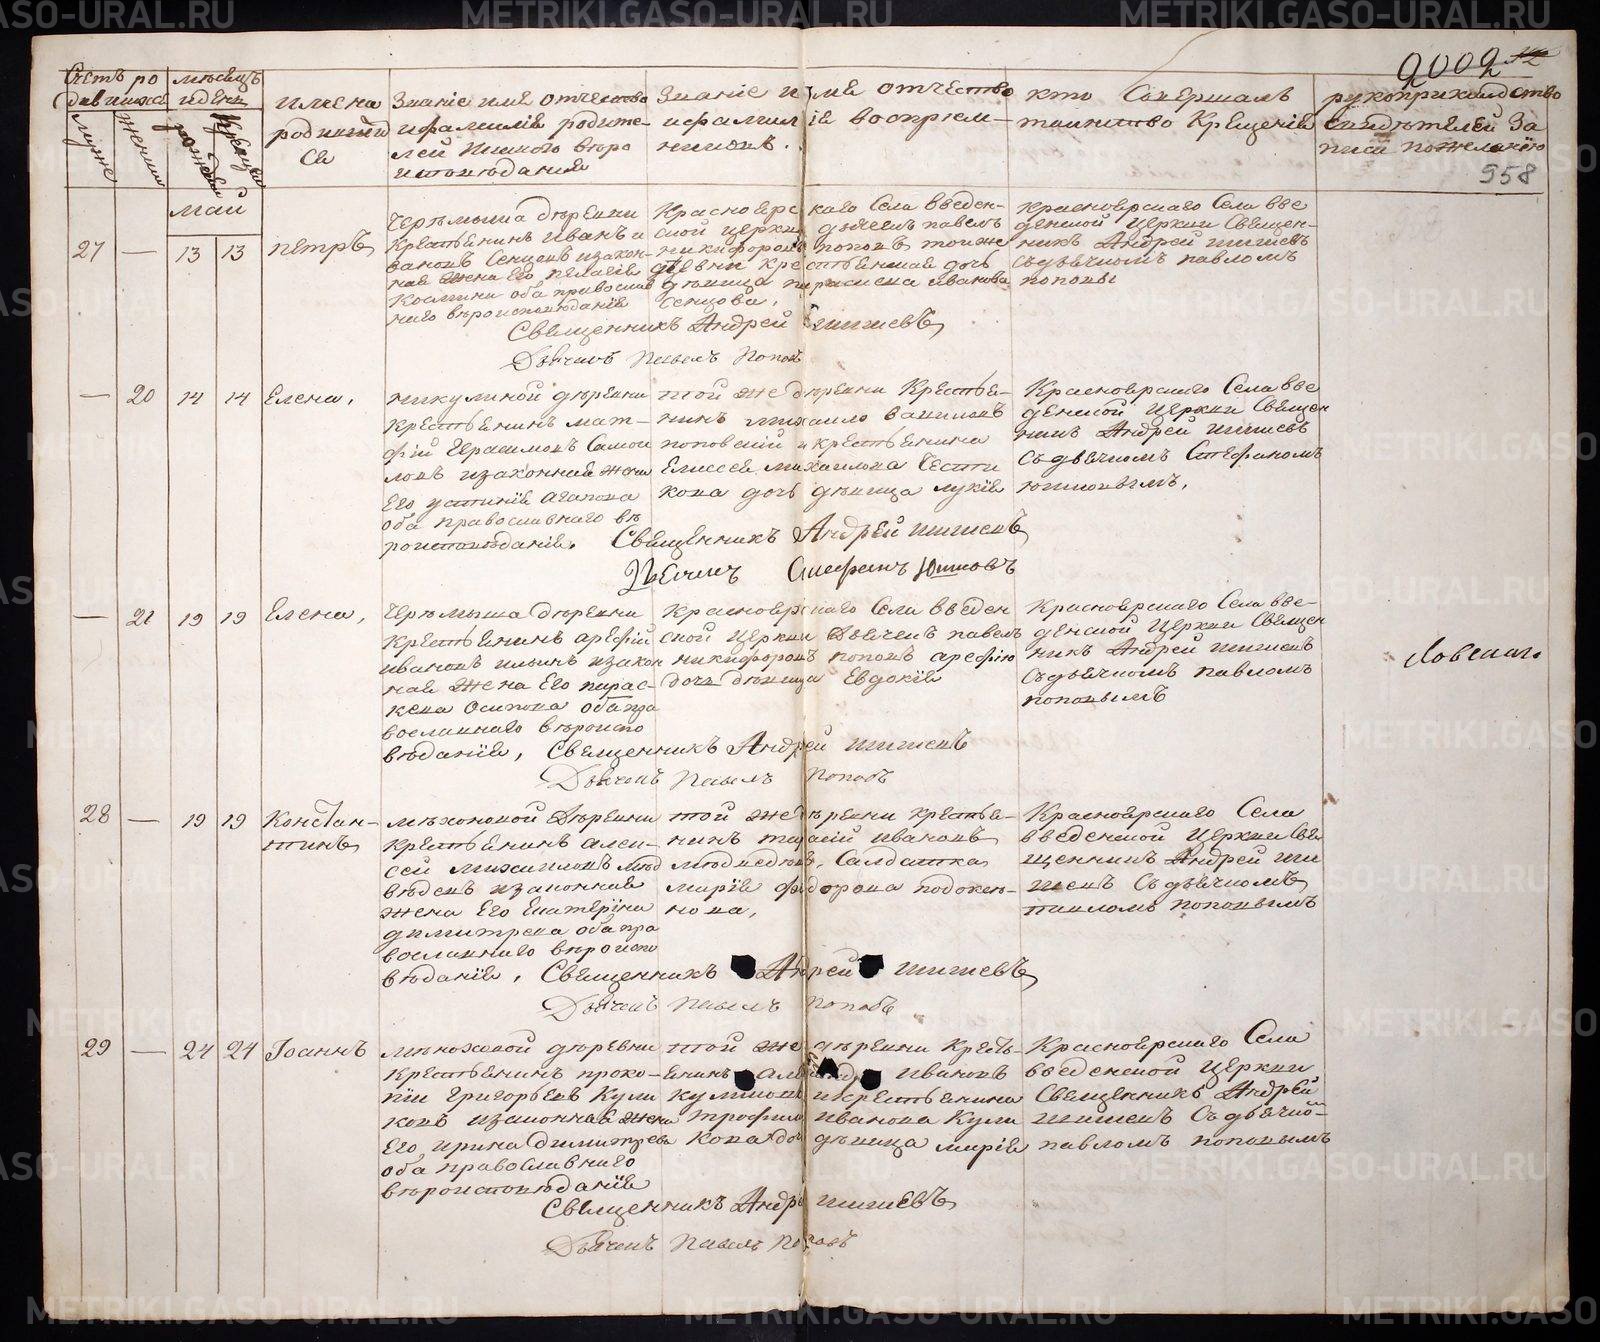 METRIKI.GASO-URAL.RU
2002
958
Счетъ ро
дившихся
муже
женщи
мѣсяцъ
и день
рождені
крещені
май
имена
родивших
ся
Званіе имя отчество
и фамилія родите-
лей и какого вѣро
исповѣданія
Званіе имя отчество
и фамилія воспріем-
никовъ.
кто Совершалъ
таинство Крещенія
рукоприкладство
свидѣтелей За
писи по желанію
27 — 13 13 петръ
деревни
Крестьянинъ Иванъ и
вановъ Сенцовъ изакон-
ная жена Его пелагія
Космина оба православ
наго вѣроисповѣданія
Красноярскаго Села введен-
ской церкви дьячекъ павелъ
никифоровъ поповъ той же
деревни крестьянская дочь
дѣвица параскева иванова
Сенцова,
Красноярскаго Села вве
денской Церкви Священ-
никъ Андрей шишевъ
Съ дьячкомъ павломъ
поповы
Священникъ Андрей шишевъ
Дьячекъ Павелъ Поповъ
— 20 14 14 Елена,
никулиной деревни
Крестьянинъ мат-
фій Герасимовъ Самои
ловъ изаконная жена
Его устинія агапова
оба православнаго вѣ
роисповѣданія.
той же деревни Крестья-
нинъ михаило вавиловъ
поповскій и крестьянина
Елисея михаилова
кова дочь дѣвица лукія
Красноярскаго Села вве
денской Церкви Священ
никъ Андрей шишевъ
Съ дьячкомъ Стефаномъ
юшковымъ,
Священникъ Андрей шишевъ
Дьячекъ Стефанъ Юшковъ
— 21 19 19 Елена,
деревни
Крестьянинъ арефій
ивановъ ильинъ изакон
ная жена Его парас-
кева Осипова оба пра
вославнаго вѣроиспо
вѣданія,
Красноярскаго Села введен
ской церкви Дьячекъ павелъ
никифоровъ поповъ арефію
дочь дѣвица Евдокія
Красноярскаго Села вве-
денской Церкви Священ
никъ Андрей шишевъ
Съ дьячкомъ павломъ
поповымъ
Священникъ Андрей шишевъ
Дьячекъ Павелъ Поповъ
28 — 19 19 Констан-
тинъ
мѣхоновой деревни
Крестьянинъ алек-
сей михаиловъ мѣд
вѣдевъ изаконная
жена Его Екатерина
димитрева оба пра
вославнаго вѣроиспо
вѣданія,
той же деревни крестья-
нинъ тарасій ивановъ
мѣдвѣдевъ, Салдатка
марія федорова
нова,
Красноярскаго Села
введенской Церкви Свя
щенникъ Андрей ши
шевъ Съ дьячкомъ
павломъ поповымъ
Священникъ Андрей шишевъ
Дьячекъ Павелъ Поповъ
29 — 24 24 Іоаннъ
деревни
Крестьянинъ проко-
пій Григорьевъ Кули
ковъ изаконная жена
Его ирина димитрева
оба православнаго
вѣроисповѣданія
той же деревни Кресть-
янинъ ивановъ
куликовъ икрестьянина
трофима иванова Кули
кова дочь дѣвица марія
Красноярскаго Села
введенской Церкви
Священникъ Андрей
шишевъ Съ дьячко-
павломъ поповымъ
Священникъ Андрей шишевъ
Дьячекъ Павелъ Поповъ